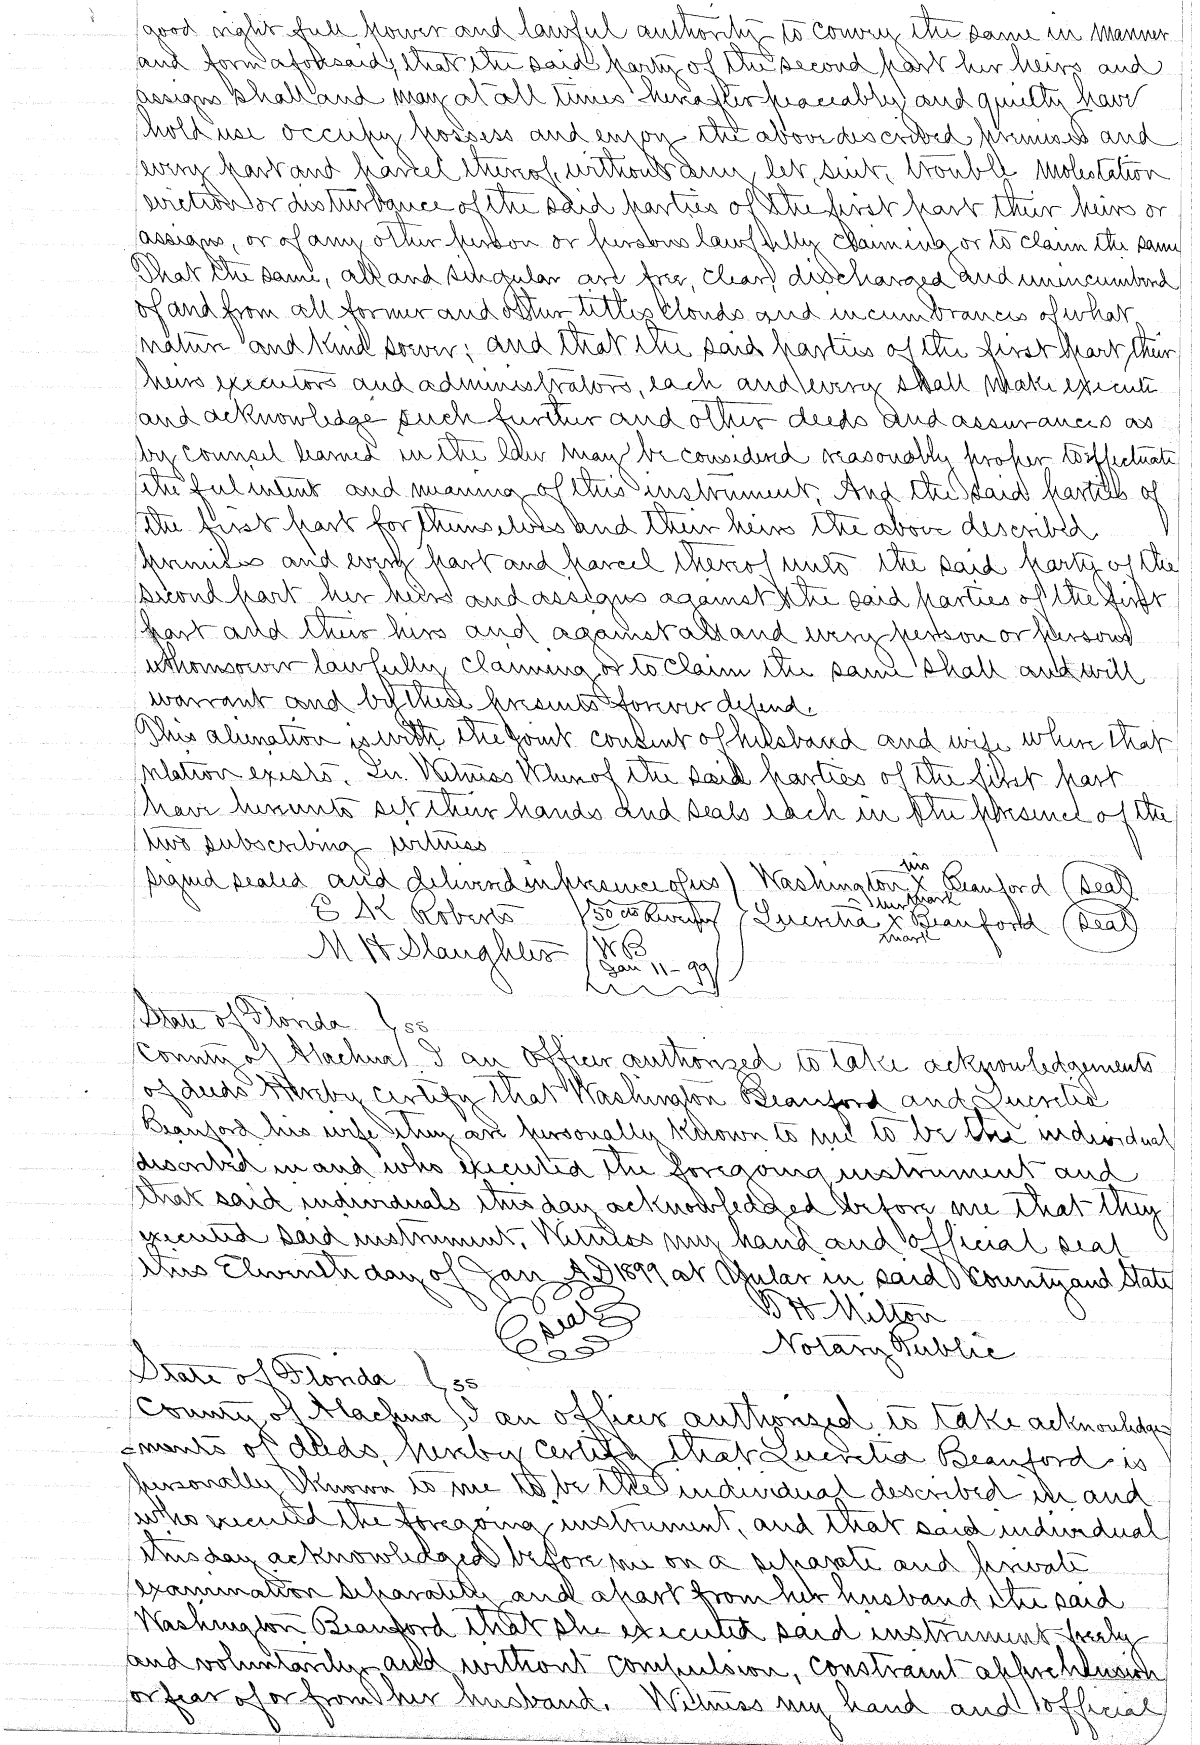 good right full power and lawful authority to convey the same in manner
and form aforesaid, that the said party of the second part her heirs and
assigns shall and may at all times hereafter peaceably and quietly have
hold use occupy possess and enjoy the above described premises and
every part and parcel thereof, without any let, suit, trouble molestation
eviction or disturbance of the said parties of the first part their heirs or
assigns, or of any other person or persons lawfully claiming or to claim the same
That the same, all and singular are free, clear, discharged and unincumbered
of and from all former and other titles clouds and incumbrances of what
nature and kind soever; and that the said parties of the first part, their
heirs executors and administrators, each and every shall make execute
and acknowledge such further and other deeds and assurances as
by counsel learned in the law may be considered reasonably proper to effectuate
the ful intent and meaning of this instrument. And the said parties of
the first part for themselves and their heirs the above described
premises and every part and parcel thereof unto the said party of the
second part her heirs and assigns against the said parties of the first
part and their heirs and against all and every person or persons
whomsoever lawfully claiming or to claim the same shall and will
warrant and by these presents forever defend.
This alienation is with the joint consent of husband and wife where that
relation exists. In Witness Whereof the said parties of the first part
have hereunto set their hands and seals each in the presence of the
two subscribing witness
signed sealed and delivered in presence of us) Washington his X mark Beanford (Seal)
E K Roberts 50 cts Revenue Lucretia her X mark Beanford (Seal)
M H Slaughter W B
Jan 11-99
State of Florida } ss
County of Alachua } I an officer authorized to take acknowledgements
of deeds Hereby certify that Washington Beanford and Lucretia
Beanford his wife they are personally known to me to be the individual
described in and who executed the foregoing instrument and
that said individuals this day acknowledged before me that they
executed said instrument. Witness my hand and official seal
this Eleventh day of Jan AD 1899 at in said County and State
(seal) B H Milton
Notary Public
State of Florida } ss
County of Alachua } I an officer authorized to take acknowledge
-ments of deeds, hereby certify that Lucretia Beanford is
personally known to me to be the individual described in and
who executed the foregoing instrument, and that said individual
this day acknowledged before me on a separate and private
examination separately and apart from her husband the said
Washington Beanford that she executed said instrument freely
and voluntarily and without compulsion, constraint apprehension
or fear of or from her husband. Witness my hand and official